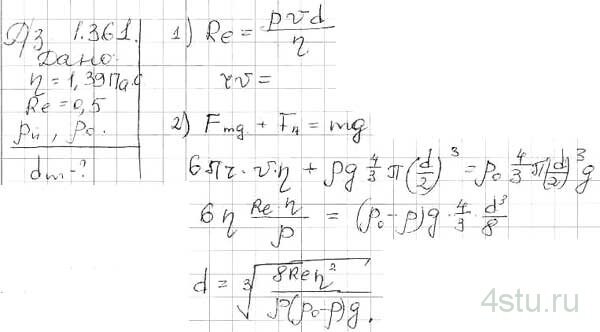 Д/з 1.361.
Дано:
η = 1,39 Па·с
Re = 0,5
ρ₀
dm - ?
1) Re = ρvd/η
rv =
2) Fтр + FА = mg
6πr·v·η + ρg 4/3 π(d/2)³ = ρ₀ 4/3 π(d/2)³g
6η Re η/ρ = (ρ₀-ρ)g·4/3·d³/8
d = ∛(8Reη²/ρ(ρ₀-ρ)g).
4stu.ru